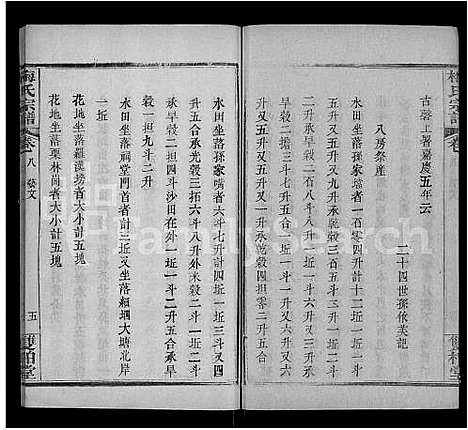 梅氏宗譜
卷
古磬上署嘉慶五年云
二十四世孫依芙記
八房祭產
水田坐落孫家嘴者一百零四升計十二坵一坵一斗
旱穀二十一担二斗八升一坵一斗六升又一坵三斗
升又五升又七升又一升承乾穀一担三斗五升又五
升又五升又五升又一升承乾穀四担零二升五合
水田坐落孫家壋者六斗七升計四坵一坵三斗又四
升五合承光穀三担六斗八升外米一坵一斗八升
穀一担四斗三升沙田在外一坵一斗二升五合承旱
穀一担九斗二升
水田坐落祠堂門首者計三坵又坐落細垇大塘北岸
一坵
花地坐落羅漢塝者大小計五塊
花地坐落栗林崗者大小計五塊
梅氏宗譜
卷八 藝文
五
雙柏堂
FamilySearch